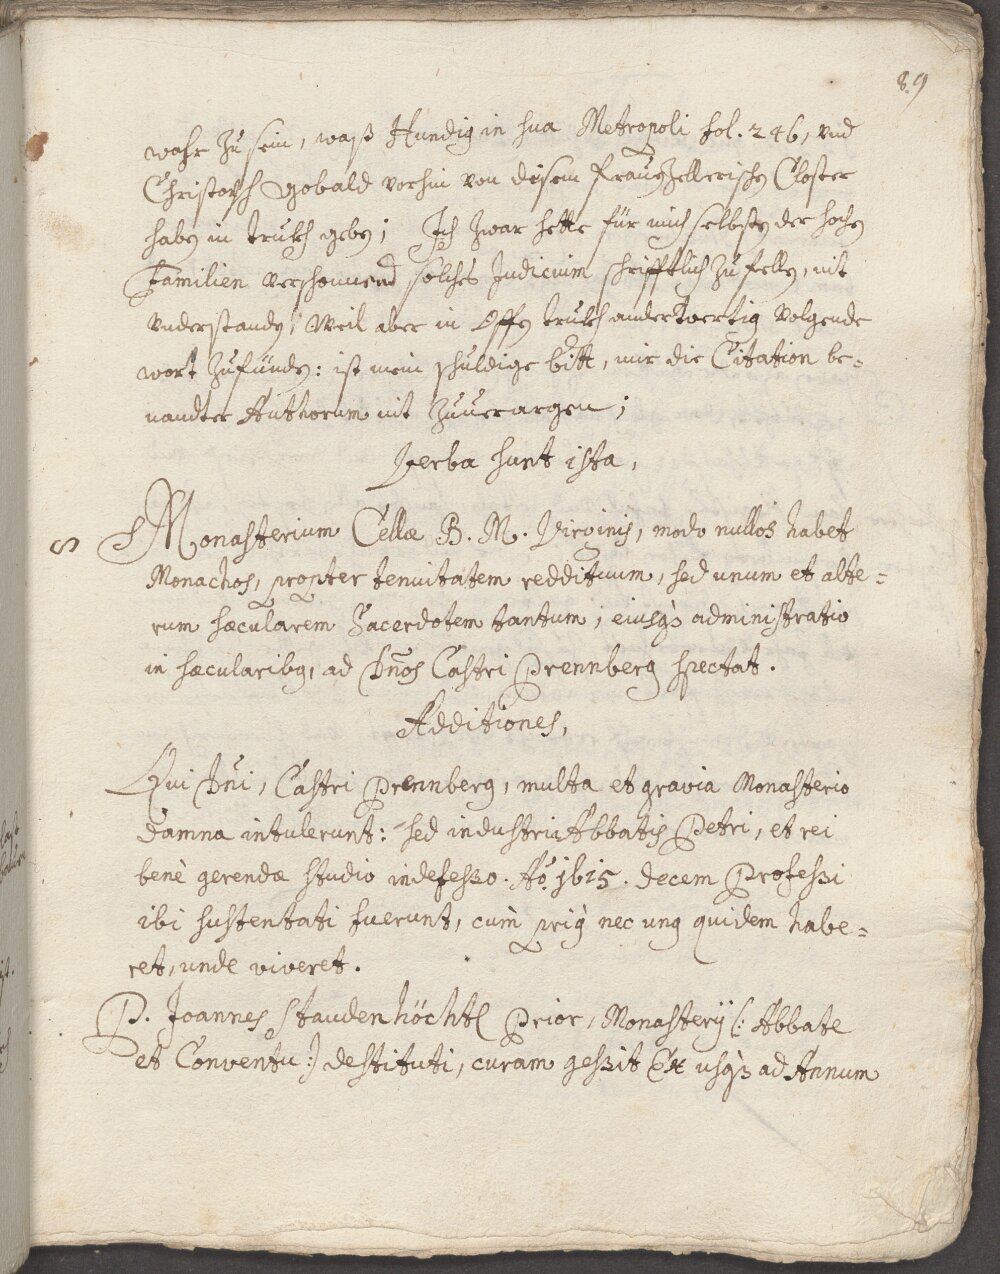 89
wahr zu sein, waß Hundig in sua Metropoli fol. 246, vnd
Christoph Gobald vorhin von disem Frauenzellerischen Closter
haben in trukh geben; Ich zwar hette für mich selbsten der hochen
Familien verschonnend solches Judicium schrifftlich zu fellen, nit
vnderstanden; Weil aber in offen trukh anderwertig volgende
wort zufünden: ist mein schuldige bitt, mir die Citation be=
nandter Authorum nit zuuerargen;
Verba sunt ista,
Monasterium Cellæ B. M. Virginis, modo nullos habet
Monachos, propter tenuitatem reddituum, sed unum et alte=
rum sæcularem Sacerdotem tantum; eiusqꝫ administratio
in sæcularibꝯ, ad Dn̄os Castri Prennberg spectat.
Additiones,
Qui Dn̄i, Castri Prennberg, multa et gravia Monasterio
damna intulerunt: sed industria Abbatis Petri, et rei
benè gerendæ studio indefesso. Aō 1615. decem Professi
ibi sustentati fuerunt, cum̀ priꝯ nec unꝯ quidem habe=
ret, unde viveret.
P. Joannes Staudenhöchtl Prior, Monasterij (: Abbate
et Conventu :) destituti, curam gessit Et usqꝫ ad Annum